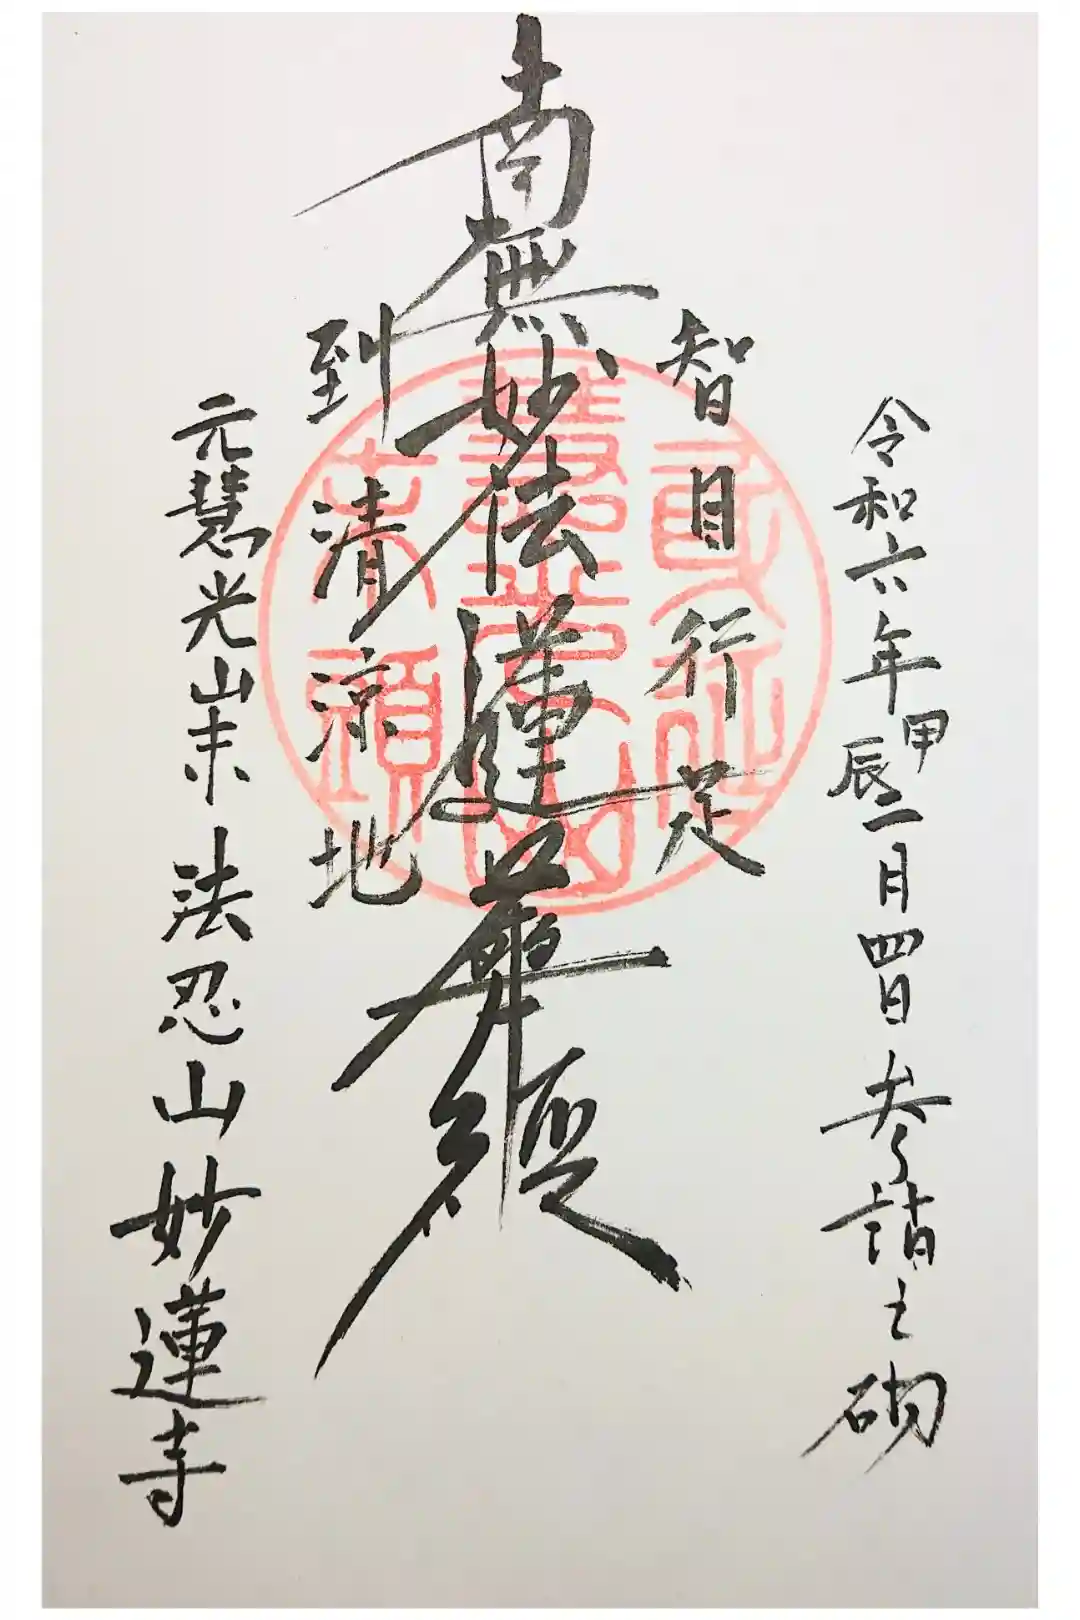 令和六年甲辰二月四日参詣之砌
智目行足
南無妙法蓮華經
到清涼地
元慧光山末法忍山妙蓮寺